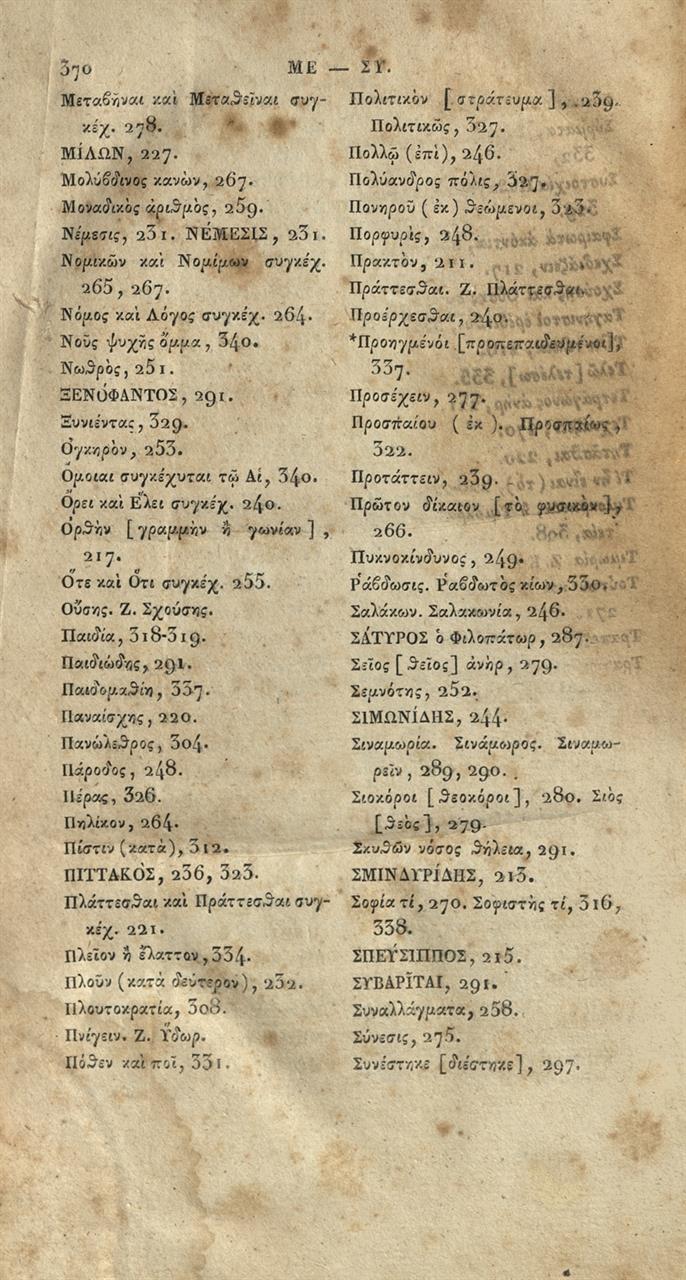 370
ΜΕ — ΣΥ.
Μεταβῆναι καὶ Μεταθεῖναι συγ-
κέχ. 278.
ΜΊΛΩΝ, 227.
Μολύβδινος κανὼν, 267.
Μοναδικὸς ἀριθμὸς, 259.
Νέμεσις, 231. ΝΈΜΕΣΙΣ, 231.
Νομικῶν καὶ Νομίμων συγκέχ.
265, 267.
Νόμος καὶ Λόγος συγκέχ. 264.
Νοῦς ψυχῆς ὄμμα, 340.
Νωθρὸς, 251.
ΞΕΝΌΦΑΝΤΟΣ, 291.
Ξυνιέντας, 329.
Ὀγκηρὸν, 253.
Ὅμοιαι συγκέχυται τῷ Αἱ, 340.
Ὄρει καὶ Ἕλει συγκέχ. 240.
Ὀρθὴν [γραμμὴν ἢ γωνίαν],
217.
Ὅτε καὶ Ὅτι συγκέχ. 255.
Οὔσης. Ζ. Σχούσης.
Παιδία, 318-319.
Παιδιώδης, 291.
Παιδομαθίη, 337.
Παναίσχης, 220.
Πανώλεθρος, 304.
Πάροδος, 248.
Πέρας, 326.
Πηλίκον, 264.
Πίστιν (κατὰ), 312.
ΠΙΤΤΑΚῸΣ, 236, 323.
Πλάττεσθαι καὶ Πράττεσθαι συγ-
κέχ. 221.
Πλεῖον ἢ ἔλαττον, 334.
Πλοῦν (κατὰ δεύτερον), 232.
Πλουτοκρατία, 308.
Πνίγειν. Ζ. Ὕδωρ.
Πόθεν καὶ ποῖ, 331.
Πολιτικὸν [στράτευμα], 239.
Πολιτικῶς, 327.
Πολλῷ (ἐπὶ), 246.
Πολύανδρος πόλις, 327.
Πονηροῦ (ἐκ) θεώμενοι, 323.
Πορφυρὶς, 248.
Πρακτὸν, 211.
Πράττεσθαι. Ζ. Πλάττεσθαι.
Προέρχεσθαι, 240.
*Προηγμένοι [προπεπαιδευμένοι],
337.
Προσέχειν, 277.
Προσπαίου (ἐκ). Προσπαίως,
322.
Προτάττειν, 239.
Πρῶτον δίκαιον [τὸ φυσικὸν],
266.
Πυκνοκίνδυνος, 249.
Ῥάβδωσις. Ῥαβδωτὸς κίων, 330.
Σαλάκων. Σαλακωνία, 246.
ΣΆΤΥΡΟΣ ὁ Φιλοπάτωρ, 287.
Σεῖος [θεῖος] ἀνὴρ, 279.
Σεμνότης, 252.
ΣΙΜΩΝΊΔΗΣ, 244.
Σιναμωρία. Σινάμωρος. Σιναμω-
ρεῖν, 289, 290.
Σιοκόροι [θεοκόροι], 280. Σιὸς
[θεὸς], 279.
Σκυθῶν νόσος θήλεια, 291.
ΣΜΙΝΔΥΡΊΔΗΣ, 213.
Σοφία τί, 270. Σοφιστὴς τί, 316,
338.
ΣΠΕΎΣΙΠΠΟΣ, 215.
ΣΥΒΑΡΙ͂ΤΑΙ, 291.
Συναλλάγματα, 258.
Σύνεσις, 275.
Συνέστηκε [διέστηκε], 297.